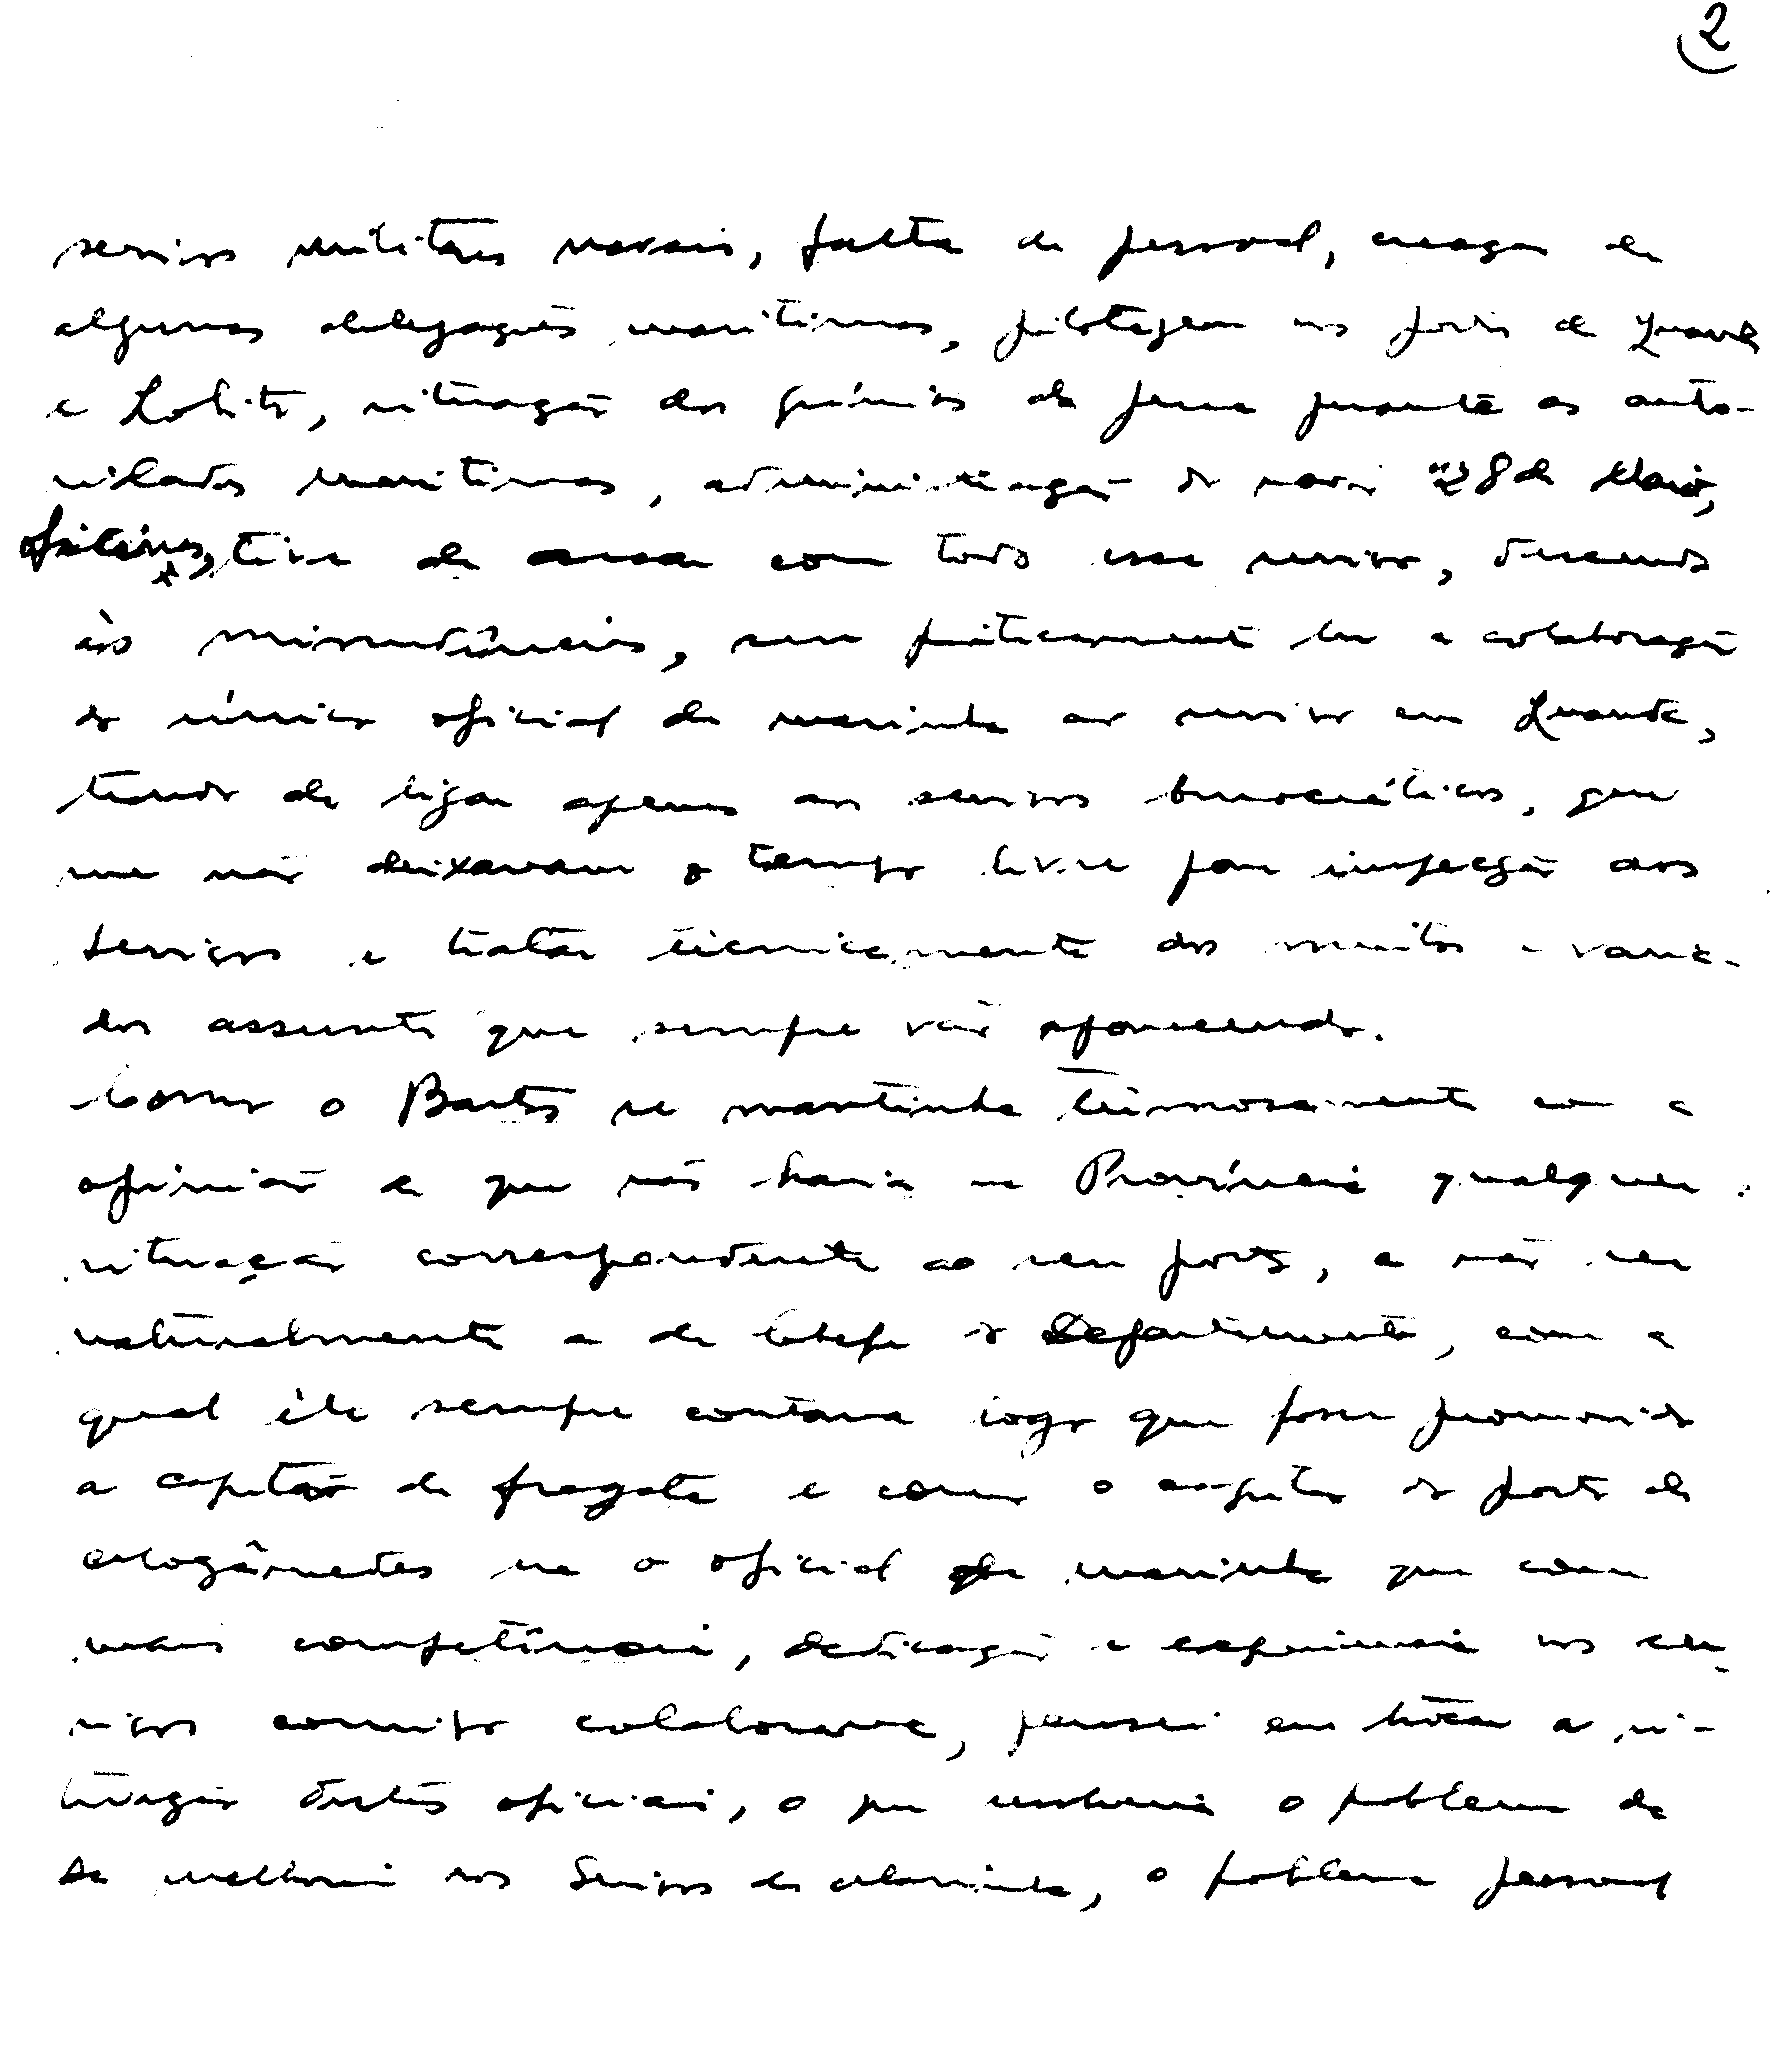 2
serviços militares navais, falta de pessoal, creação de
algumas delegações maritimas, pilotagem nos portos de Luanda
e Lobito, situação dos grémios da pesca perante as auto-
ridades maritimas, administração do navio "28 de Maio,
faróis, tive de arcar com todo esse serviço, descendo
às minudências, sem práticamente ter a colaboração
do único oficial de marinha ao serviço em Luanda,
tendo de ligar apenas aos serviços burocráticos, que
me não deixavam o tempo livre para inspecção aos
serviços e tratar técnicamente dos muitos e varia-
dos assuntos que sempre vão aparecendo.
Como o Bastos se mantinha teimosamente com a
opinião de que não havia na Província qualquer
situação correspondente ao seu posto, a não ser
naturalmente a de Chefe do Departamento, com a
qual êle sempre contava logo que fosse promovido
a capitão de fragata e como o capitão do porto de
Moçâmedes era o oficial de marinha que com
mais competência, dedicação e experiencia nos ser-
viços comigo colaborava, pensei em trocar a si-
tuação destes oficiais, o que resolveria o problema da
da melhoria nos Serviços de Marinha, o problema pessoal